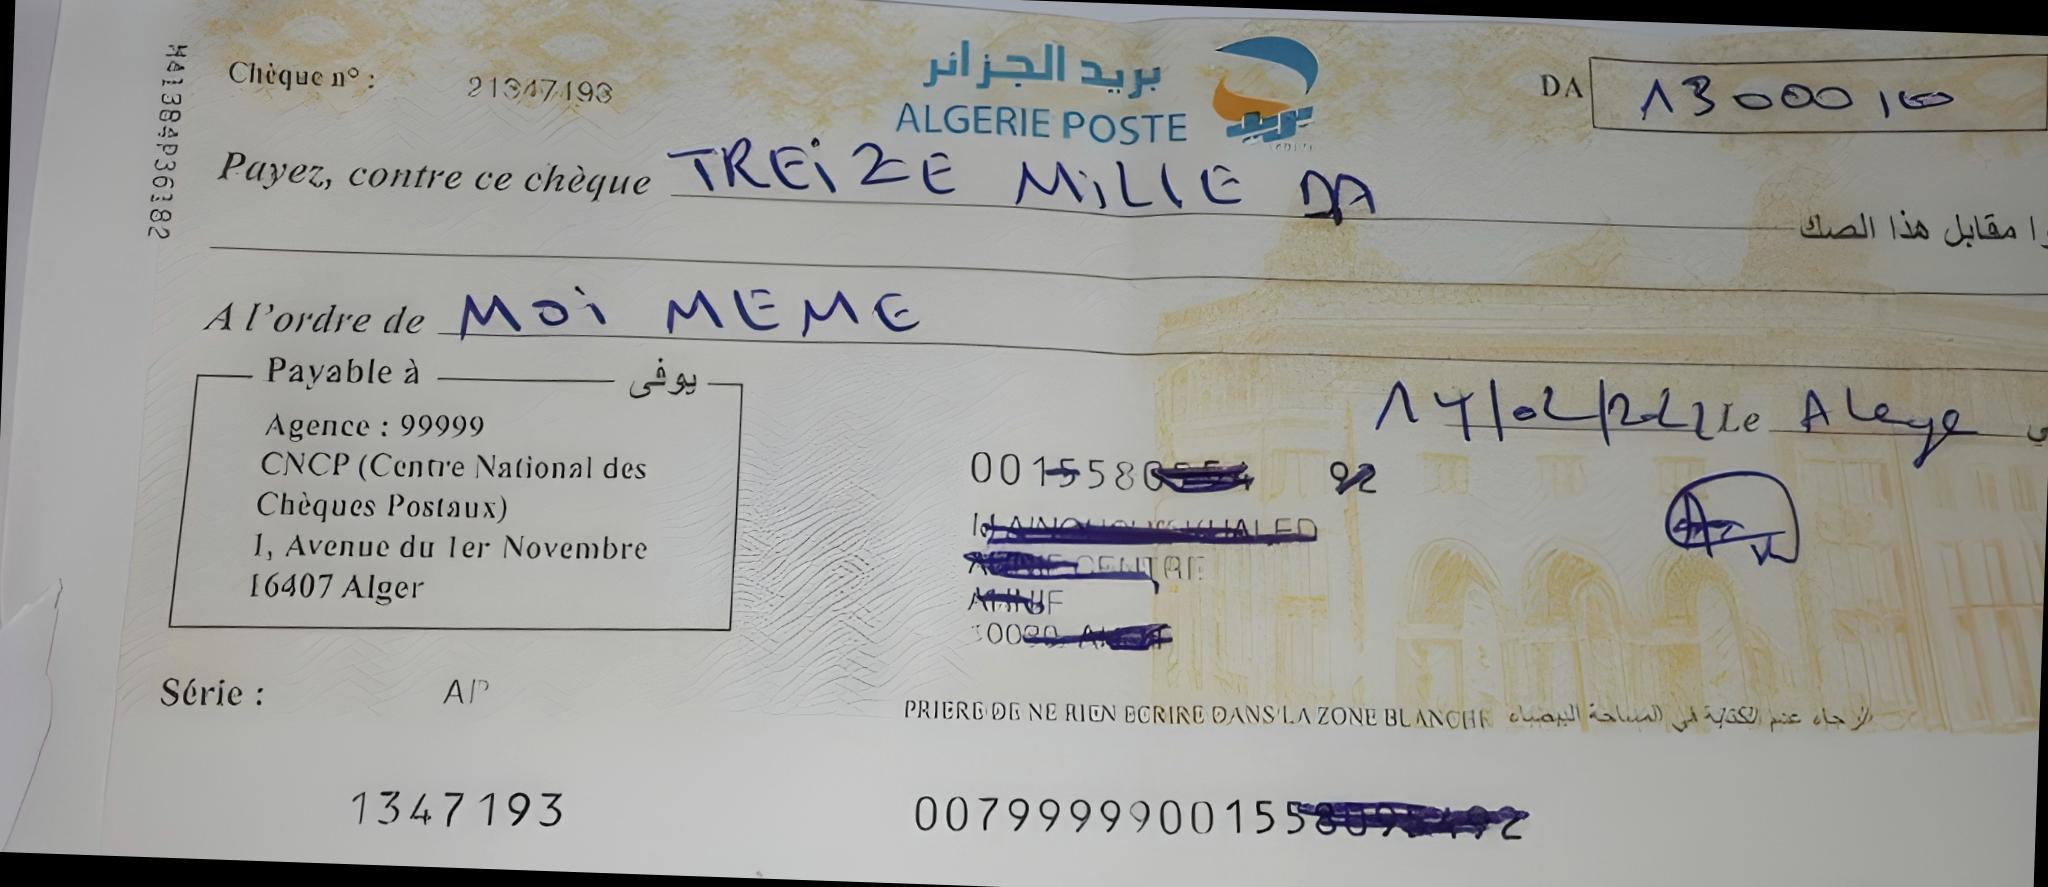 M41384P36182
Chèque n° : 21347193
بريد الجزائر
ALGERIE POSTE
DA 13000,00
Payez, contre ce chèque TREiZE MiLLE DA
مقابل هذا الصك
A l'ordre de MOi MEME
Payable à يوفى
Agence : 99999
CNCP (Centre National des
Chèques Postaux)
1, Avenue du 1er Novembre
16407 Alger
Le
0015580
92
CENTRE
Série : AP
PRIERE DE NE RIEN ECRIRE DANS LA ZONE BLANCHE الرجاء عدم الكتابة في المساحة البيضاء
1347193
0079999900155